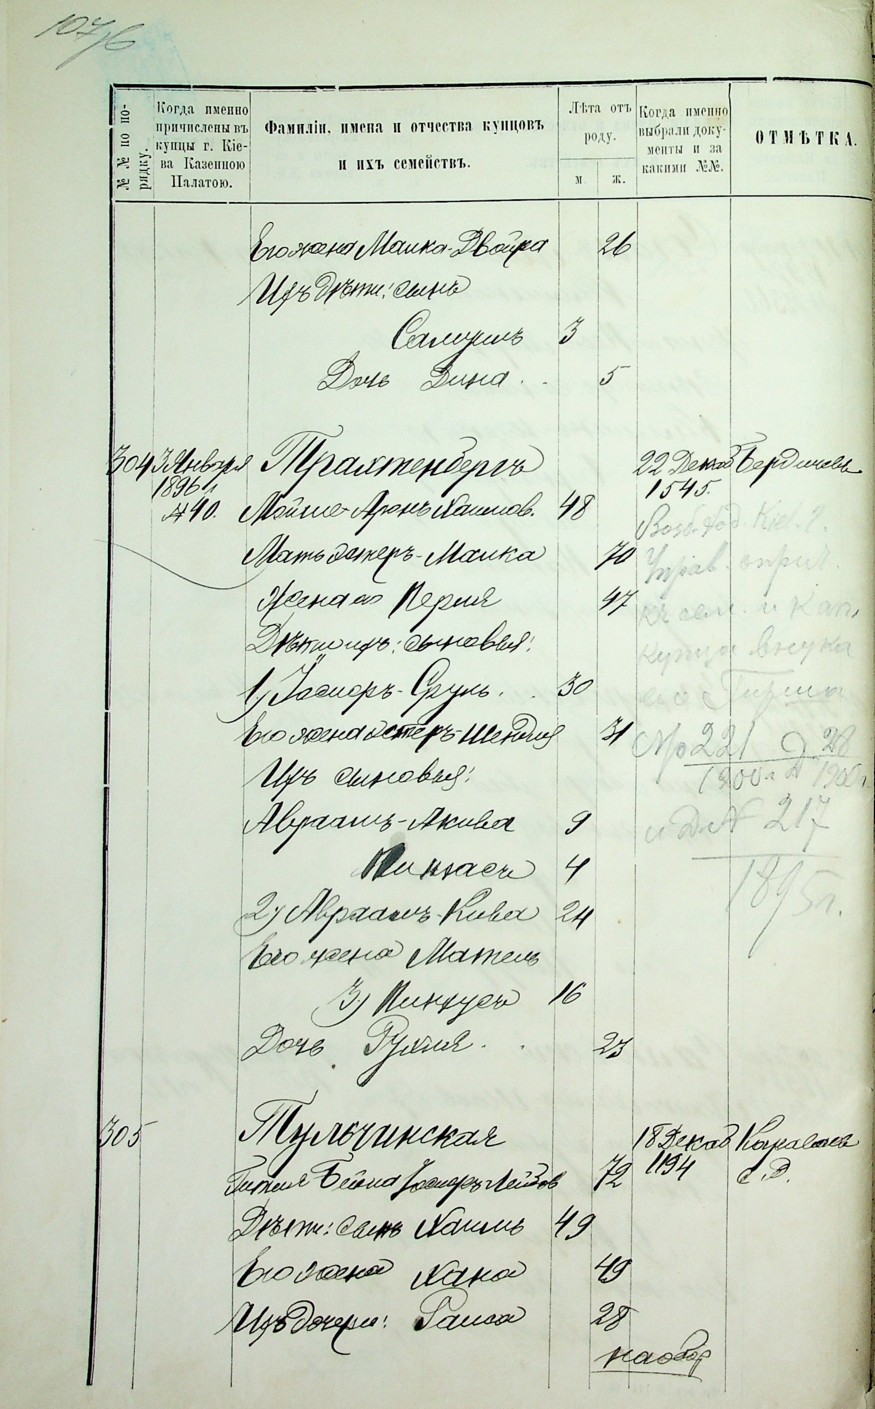 107/6
№ № по по-
рядку.
Когда именно
причислены въ
купцы г. Кіе-
ва Казенною
Палатою.
Фамиліи, имена и отчества купцовъ
и ихъ семействъ.
Лѣта отъ
роду.
м ж.
Когда именно
выбрали доку-
менты и за
какими №№.
ОТМѢТКА.
Его жена Малка-Двойра 26
Ихъ дѣти: сынъ
Самуилъ 3
Дочь Дина 5
304 3 Января Трахтенбергъ 22 Декаб Бердичевъ
1896 г. 1545.
№ 40. Мойше-Аронъ Хаимов. 48
Мать Эстеръ-Малка 70
Жена его Перля 47
Дѣти ихъ: сыновья:
1) Іосифъ-Сруль 30
Его жена Эстеръ-Шендля 31
Ихъ сыновья:
Авраамъ-Акива 9
Пинхасъ 4
2) Авраамъ-Кива 24
Его жена Матель
3) Пинхусъ 16
Дочь Рухля 23
къ сем. и кап.
купца внука
его
№ 221 Д. 28
1900 г. 1900 г.
и Д. № 217
1895 г.
305 Тульчинская 18 Декаб Караваев
Гитля Бейла Іосифъ-Лейбов 72 1194 С. Д.
Дѣти: сынъ Хаимъ 49
Его жена Хана 49
Ихъ дочери: Раиса 28
на обор